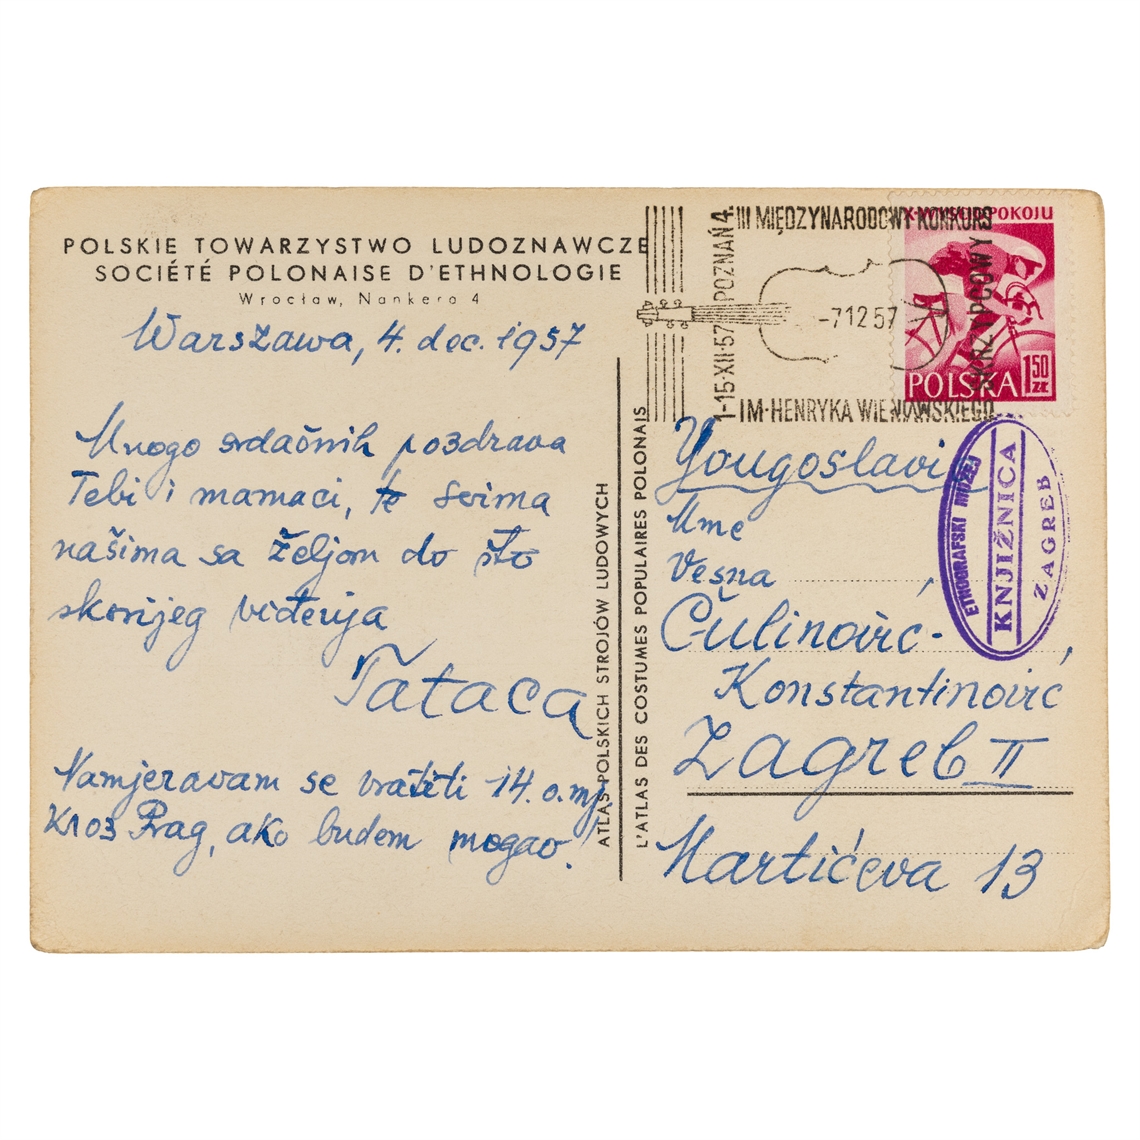 POLSKIE TOWARZYSTWO LUDOZNAWCZE
SOCIÉTÉ POLONAISE D'ETHNOLOGIE
Wrocław, Nankera 4
Warszawa, 4. dec. 1957
Mnogo srdačnih pozdrava
Tebi i mamaci, te svima
našima sa željom do što
skorijeg viđenja
Tataca
Namjeravam se vratiti 14. o. mj.
kroz Prag, ako budem mogao.
ATLAS POLSKICH STROJÓW LUDOWYCH
L'ATLAS DES COSTUMES POPULAIRES POLONAIS
III MIĘDZYNARODOWY KONKURS
SKRZYPCOWY
IM·HENRYKA WIENIAWSKIEGO
1-15·XII·57 POZNAŃ 4
-7 12 57
X WYŚCIG POKOJU
POLSKA 1 50 ZŁ
ETNOGRAFSKI MUZEJ
KNJIŽNICA
ZAGREB
Yougoslavie
Mme
Vesna
Čulinović-
Konstantinović
Zagreb II
Martićeva 13